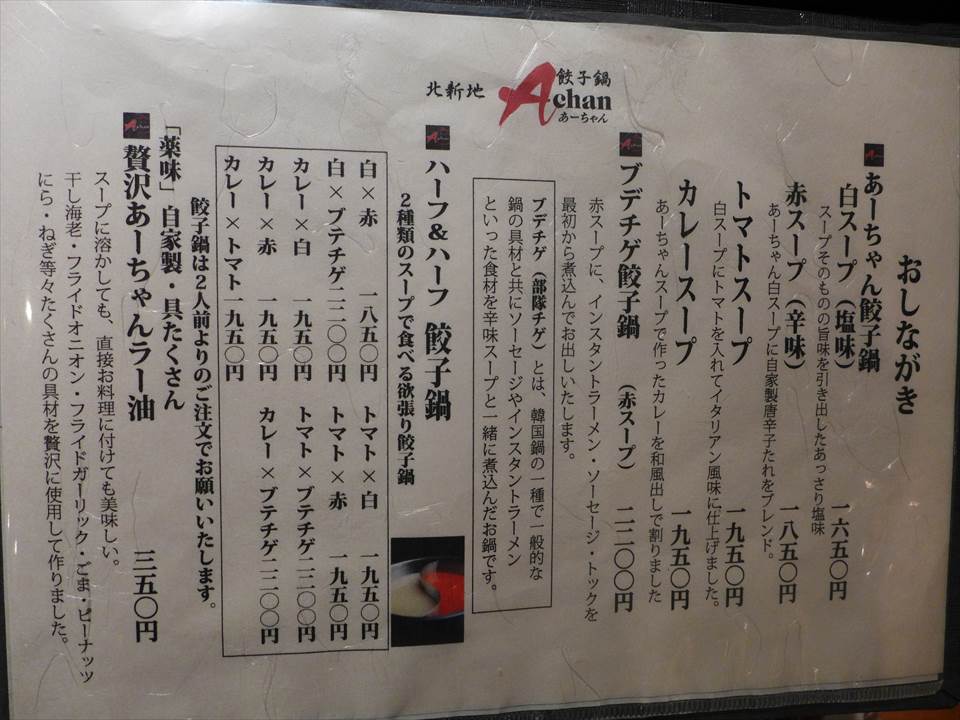 北新地
餃子鍋
Achan
あーちゃん
おしながき
あーちゃん餃子鍋
白スープ（塩味） 一六五〇円
スープそのものの旨味を引き出したあっさり塩味
赤スープ（辛味） 一八五〇円
あーちゃん白スープに自家製唐辛子たれをブレンド。
トマトスープ 一九五〇円
白スープにトマトを入れてイタリアン風味に仕上げました。
カレースープ 一九五〇円
あーちゃんスープで作ったカレーを和風出しで割りました
ブデチゲ餃子鍋 （赤スープ） 二二〇〇円
赤スープに、インスタントラーメン・ソーセージ・トックを
最初から煮込んでお出しいたします。
ブデチゲ（部隊チゲ）とは、韓国鍋の一種で一般的な
鍋の具材と共にソーセージやインスタントラーメン
といった食材を辛味スープと一緒に煮込んだお鍋です。
ハーフ&ハーフ 餃子鍋
2種類のスープで食べる欲張り餃子鍋
白×赤 一八五〇円 トマト×白 一九五〇円
白×ブテチゲ二二〇〇円 トマト×赤 一九五〇円
カレー×白 一九五〇円 トマト×ブテチゲ二二〇〇円
カレー×赤 一九五〇円 カレー×ブテチゲ二二〇〇円
カレー×トマト一九五〇円
餃子鍋は2人前よりのご注文でお願いいたします。
「薬味」自家製・具たくさん
贅沢あーちゃんラー油 三五〇円
スープに溶かしても、直接お料理に付けても美味しい。
干し海老・フライドオニオン・フライドガーリック・ごま・ピーナッツ
にら・ねぎ等々たくさんの具材を贅沢に使用して作りました。